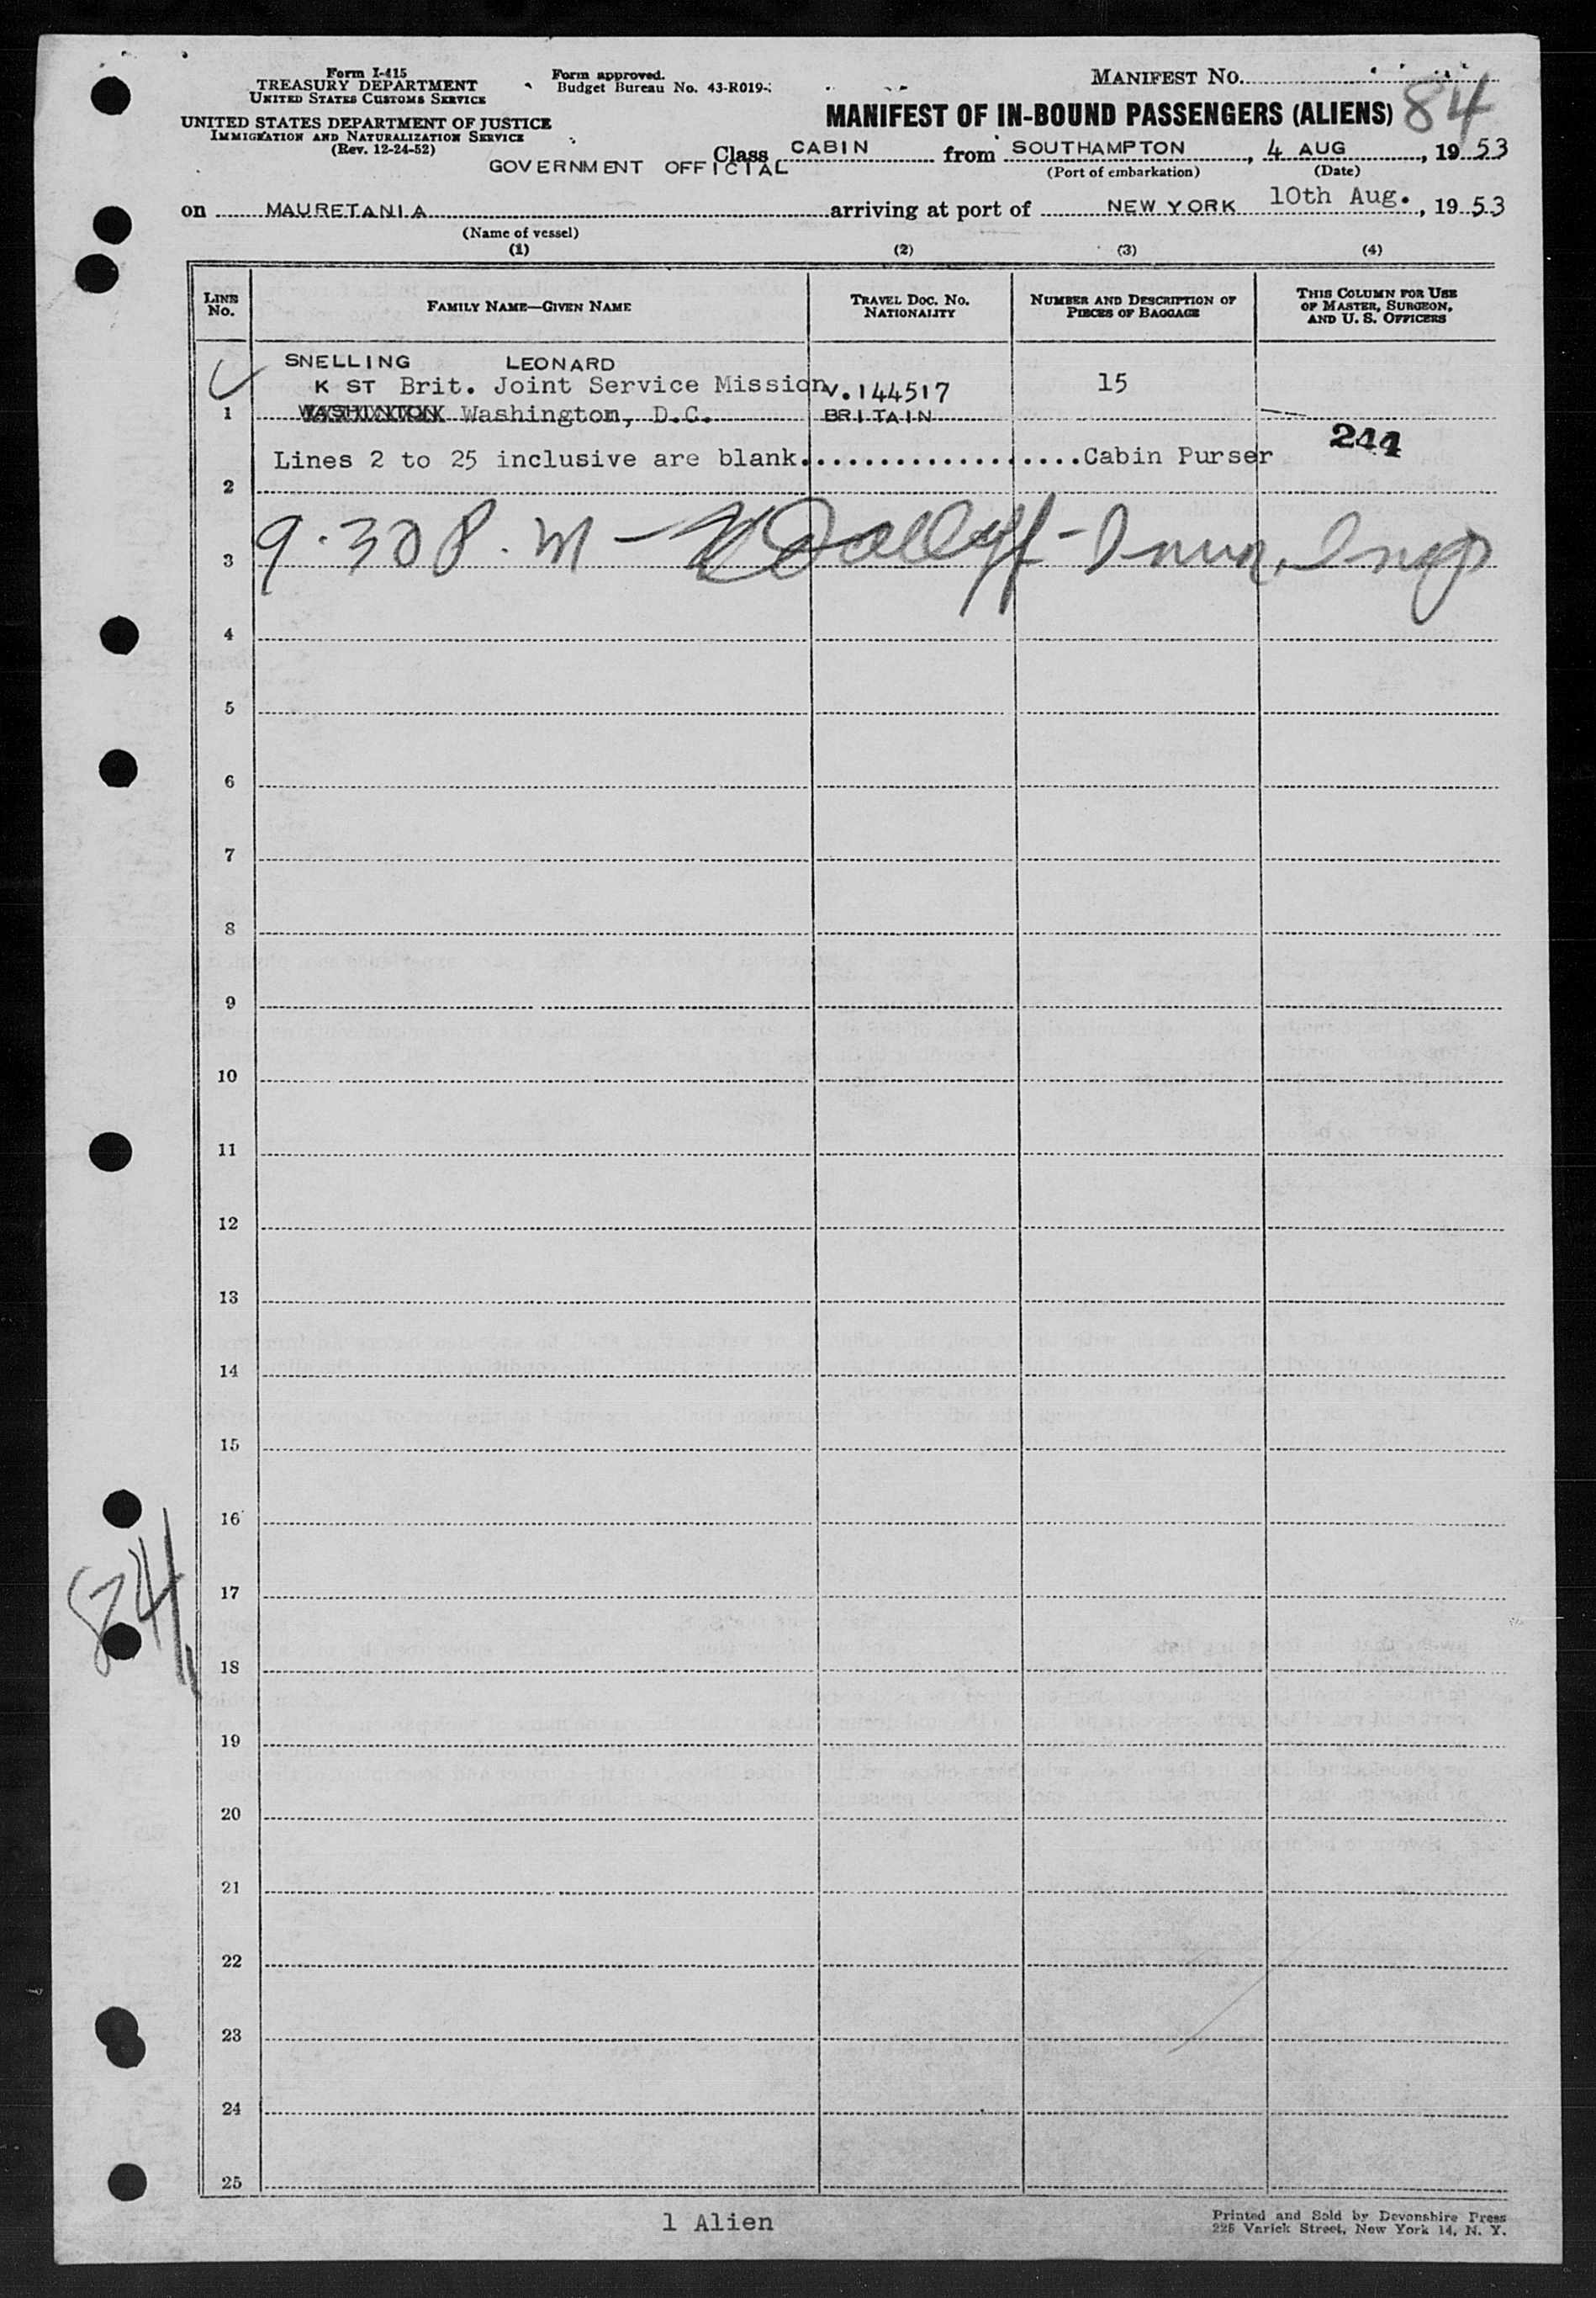 Form I-415
TREASURY DEPARTMENT
UNITED STATES CUSTOMS SERVICE
UNITED STATES DEPARTMENT OF JUSTICE
IMMIGRATION AND NATURALIZATION SERVICE
(Rev. 12-24-52)
Form approved.
Budget Bureau No. 43-R019-
MANIFEST NO.
84
MANIFEST OF IN-BOUND PASSENGERS (ALIENS)
GOVERNMENT OFFICIAL
Class CABIN from SOUTHAMPTON, 4 AUG, 1953
(Port of embarkation) (Date)
on MAURETANIA arriving at port of NEW YORK 10th Aug., 1953
(Name of vessel)
(1) (2) (3) (4)
LINE NO. FAMILY NAME—GIVEN NAME TRAVEL DOC. NO. NATIONALITY NUMBER AND DESCRIPTION OF PIECES OF BAGGAGE THIS COLUMN FOR USE OF MASTER, SURGEON, AND U. S. OFFICERS
SNELLING LEONARD
K ST Brit. Joint Service Mission V.144517 15
1 WASHINTON Washington, D.C. BRITAIN
244
Lines 2 to 25 inclusive are blank....................Cabin Purser
2
9.30 P.M - Immig. Insp
3
4
5
6
7
8
9
10
11
12
13
14
15
16
17
84
18
19
20
21
22
23
24
25
1 Alien
Printed and Sold by Devonshire Press
225 Varick Street, New York 14, N. Y.